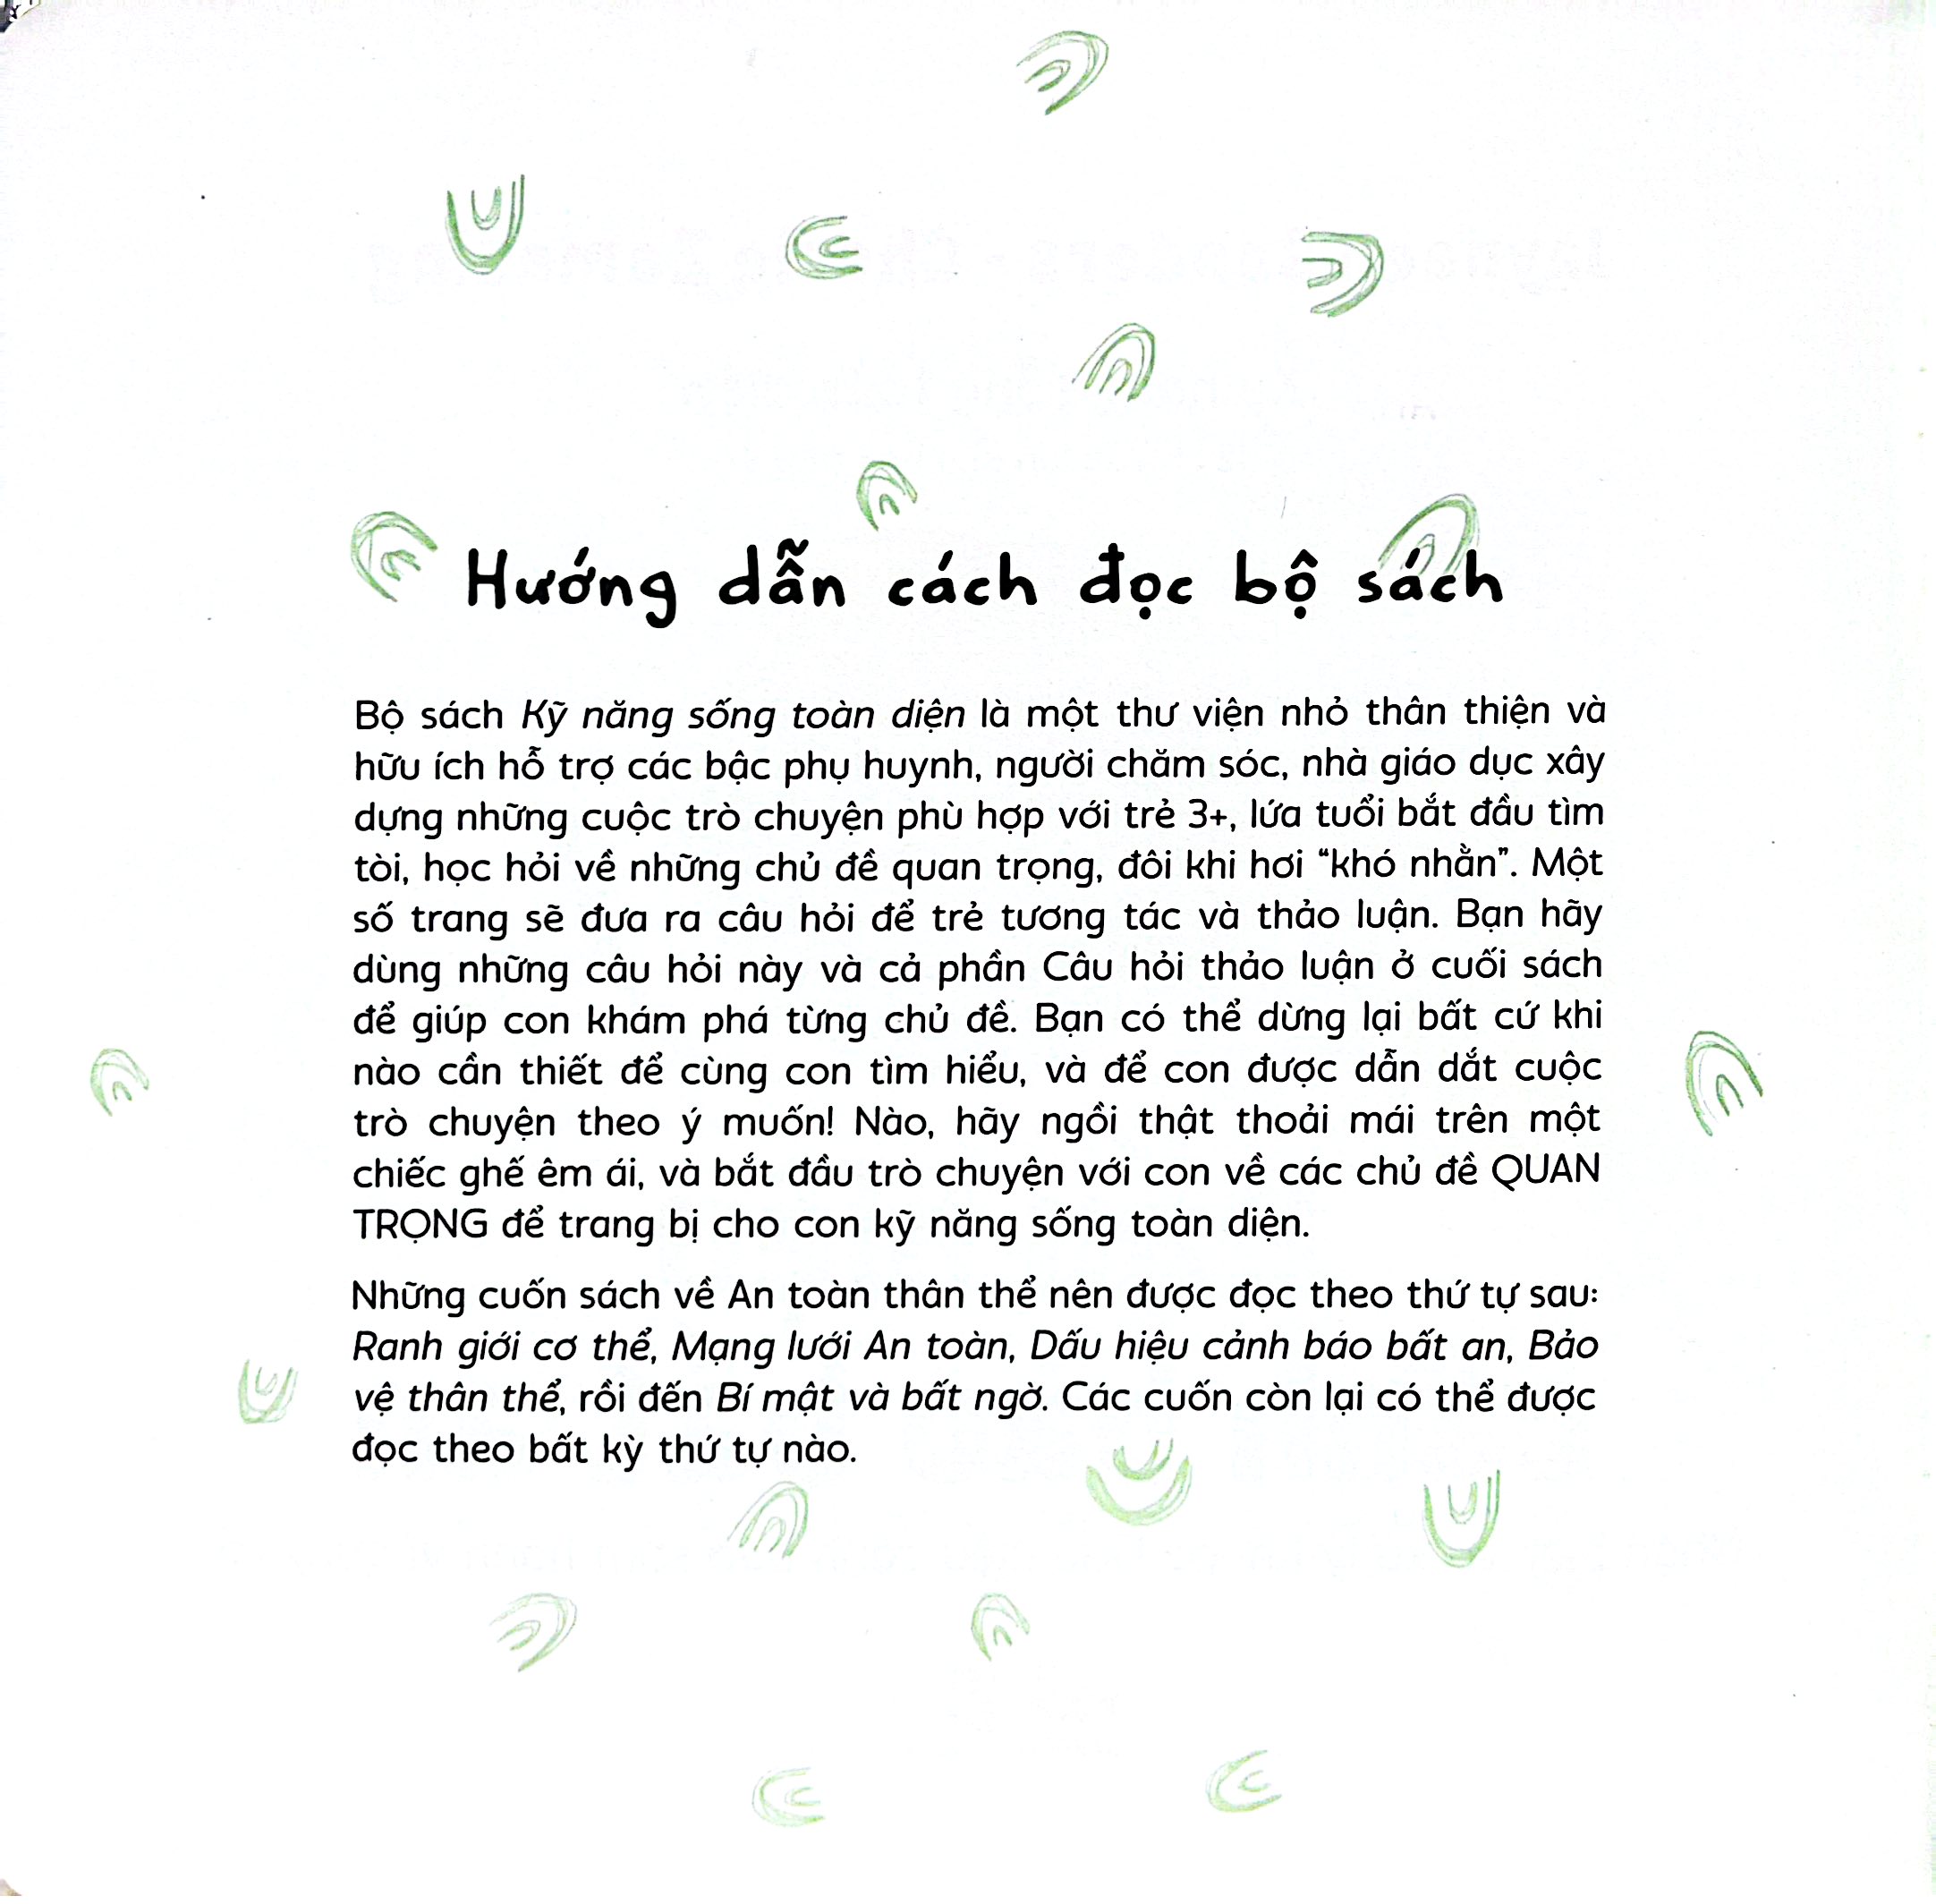 Hướng dẫn cách đọc bộ sách
Bộ sách Kỹ năng sống toàn diện là một thư viện nhỏ thân thiện và
hữu ích hỗ trợ các bậc phụ huynh, người chăm sóc, nhà giáo dục xây
dựng những cuộc trò chuyện phù hợp với trẻ 3+, lứa tuổi bắt đầu tìm
tòi, học hỏi về những chủ đề quan trọng, đôi khi hơi “khó nhằn”. Một
số trang sẽ đưa ra câu hỏi để trẻ tương tác và thảo luận. Bạn hãy
dùng những câu hỏi này và cả phần Câu hỏi thảo luận ở cuối sách
để giúp con khám phá từng chủ đề. Bạn có thể dừng lại bất cứ khi
nào cần thiết để cùng con tìm hiểu, và để con được dẫn dắt cuộc
trò chuyện theo ý muốn! Nào, hãy ngồi thật thoải mái trên một
chiếc ghế êm ái, và bắt đầu trò chuyện với con về các chủ đề QUAN
TRỌNG để trang bị cho con kỹ năng sống toàn diện.
Những cuốn sách về An toàn thân thể nên được đọc theo thứ tự sau:
Ranh giới cơ thể, Mạng lưới An toàn, Dấu hiệu cảnh báo bất an, Bảo
vệ thân thể, rồi đến Bí mật và bất ngờ. Các cuốn còn lại có thể được
đọc theo bất kỳ thứ tự nào.